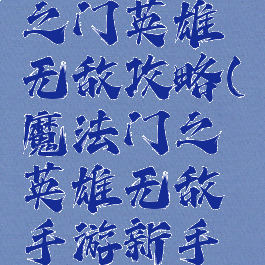 之门英雄
无敌攻略(
魔法门之
英雄无敌
手游新手